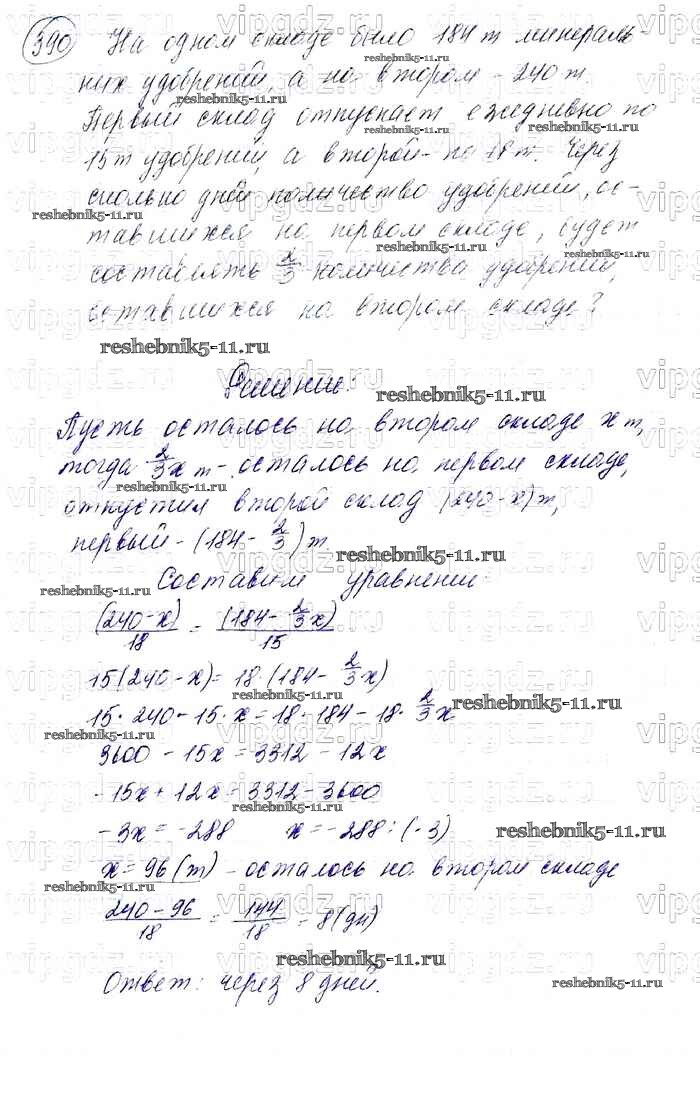 390 На одном складе было 184 т минераль-
них удобрений, а на втором - 240 т.
Первый склад отпускает ежедневно по
15 т удобрений, а второй - по 18 т. Через
сколько дней количество удобрений, ос-
тавшихся на первом складе, будет
составлять 2/3 количества удобрений,
оставшихся на втором складе?
Решение:
Пусть осталось на втором складе x т,
тогда 2/3 x т - осталось на первом складе,
отпустил второй склад (240-x) т,
первый - (184 - 2/3) т.
Составим уравнение:
(240-x)/18 = (184 - 2/3 x)/15
15(240-x) = 18·(184 - 2/3 x)
15·240 - 15·x = 18·184 - 18·2/3 x
3600 - 15x = 3312 - 12x
-15x + 12x = 3312 - 3600
-3x = -288 x = -288 : (-3)
x = 96 (т) - осталось на втором складе
(240-96)/18 = 144/18 = 8 (дн)
Ответ: через 8 дней.
vipgdz.ru
reshebnik5-11.ru